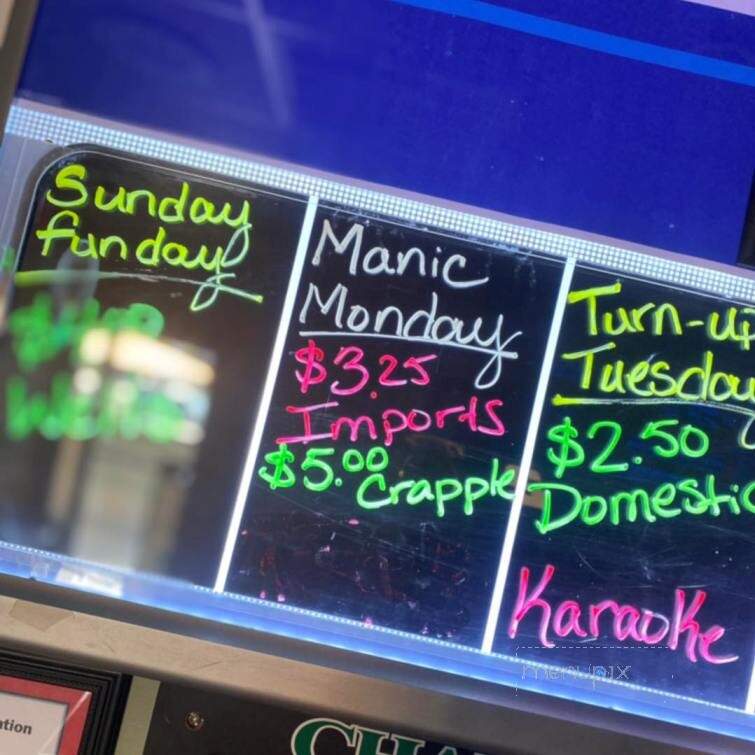 Sunday
funday
Manic
Monday
$3.25
Imports
$5.00
Crapple
Turn-up
Tuesday
$2.50
Domestic
Karaoke
menupix
ation
CHA